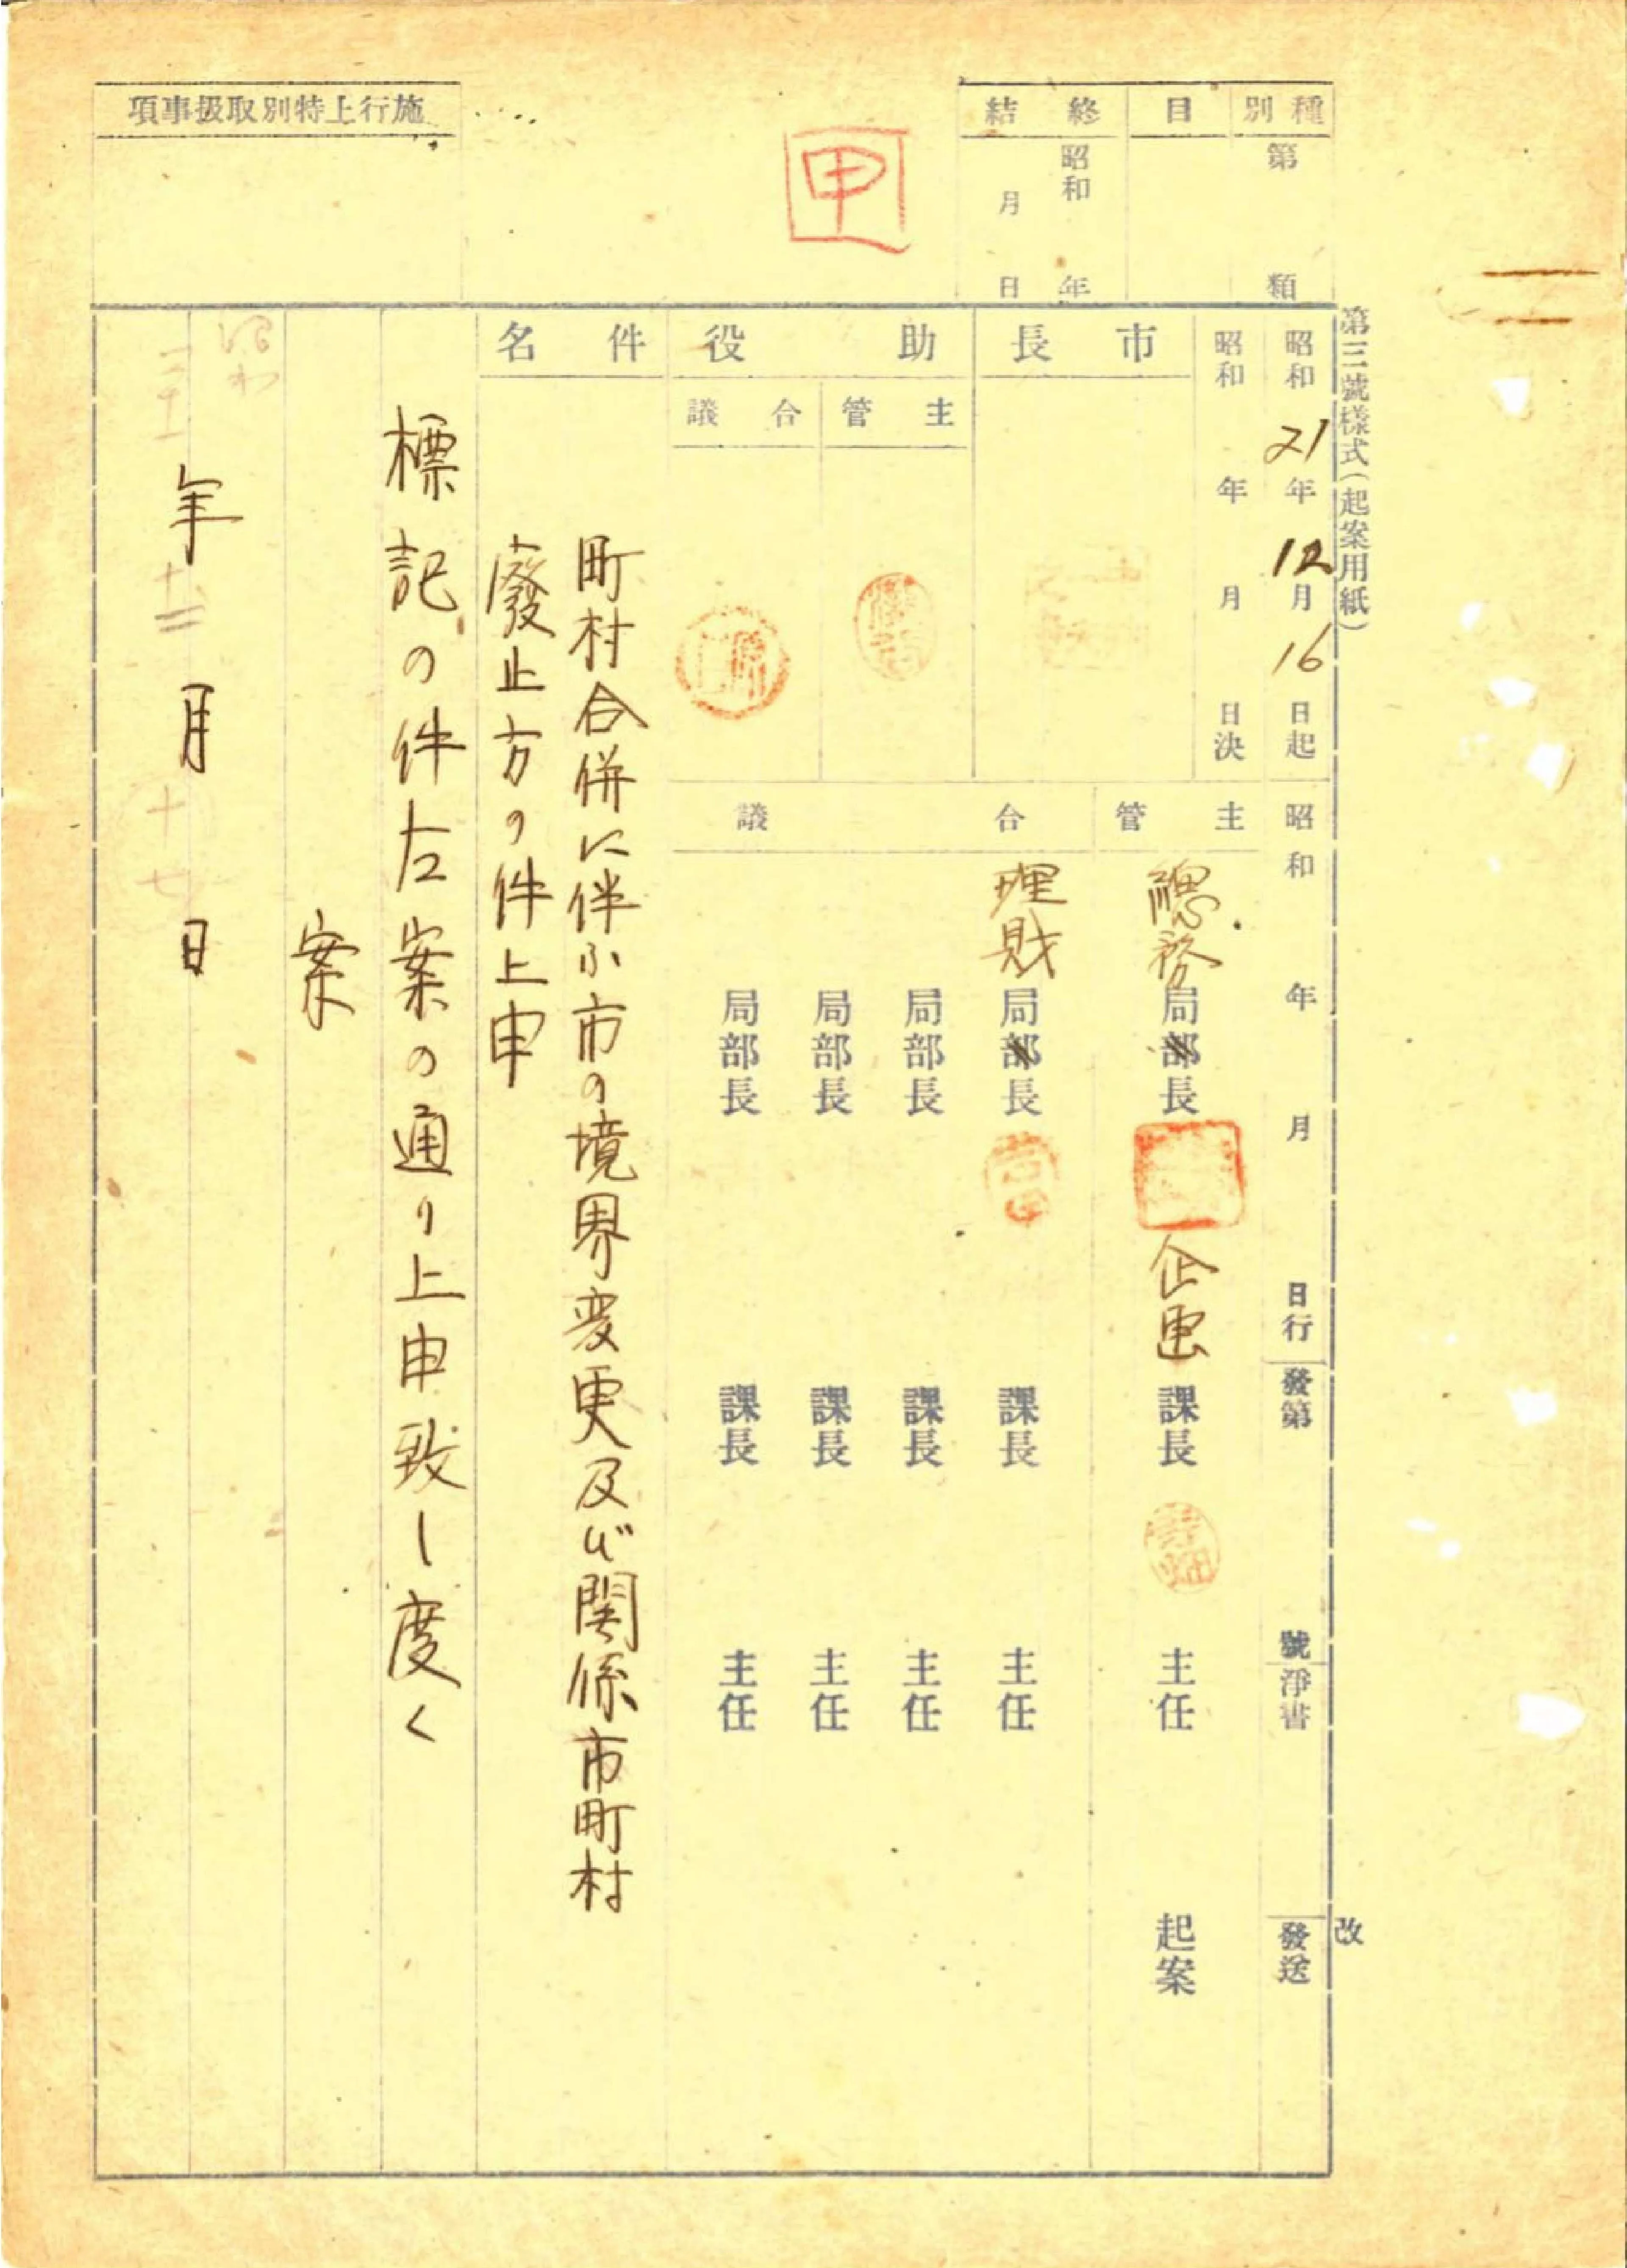 第三號樣式(起案用紙) 改
種別 第 類
目
終結 昭和 年 月 日
甲
施行上特別取扱事項
昭和21年12月16日起
昭和 年 月 日決
昭和 年 月 日行
發第 號
淨書
發送
市長
助役
主管
合議
主管
總務局部長 企画課長 主任 起案
合議
理財局部長 課長 主任
局部長 課長 主任
局部長 課長 主任
局部長 課長 主任
件名
町村合併に伴ふ市の境界変更及び関係市町村
廢止方の件上申
標記の件左案の通り上申致し度く
案
昭和
二十一年十二月十七日